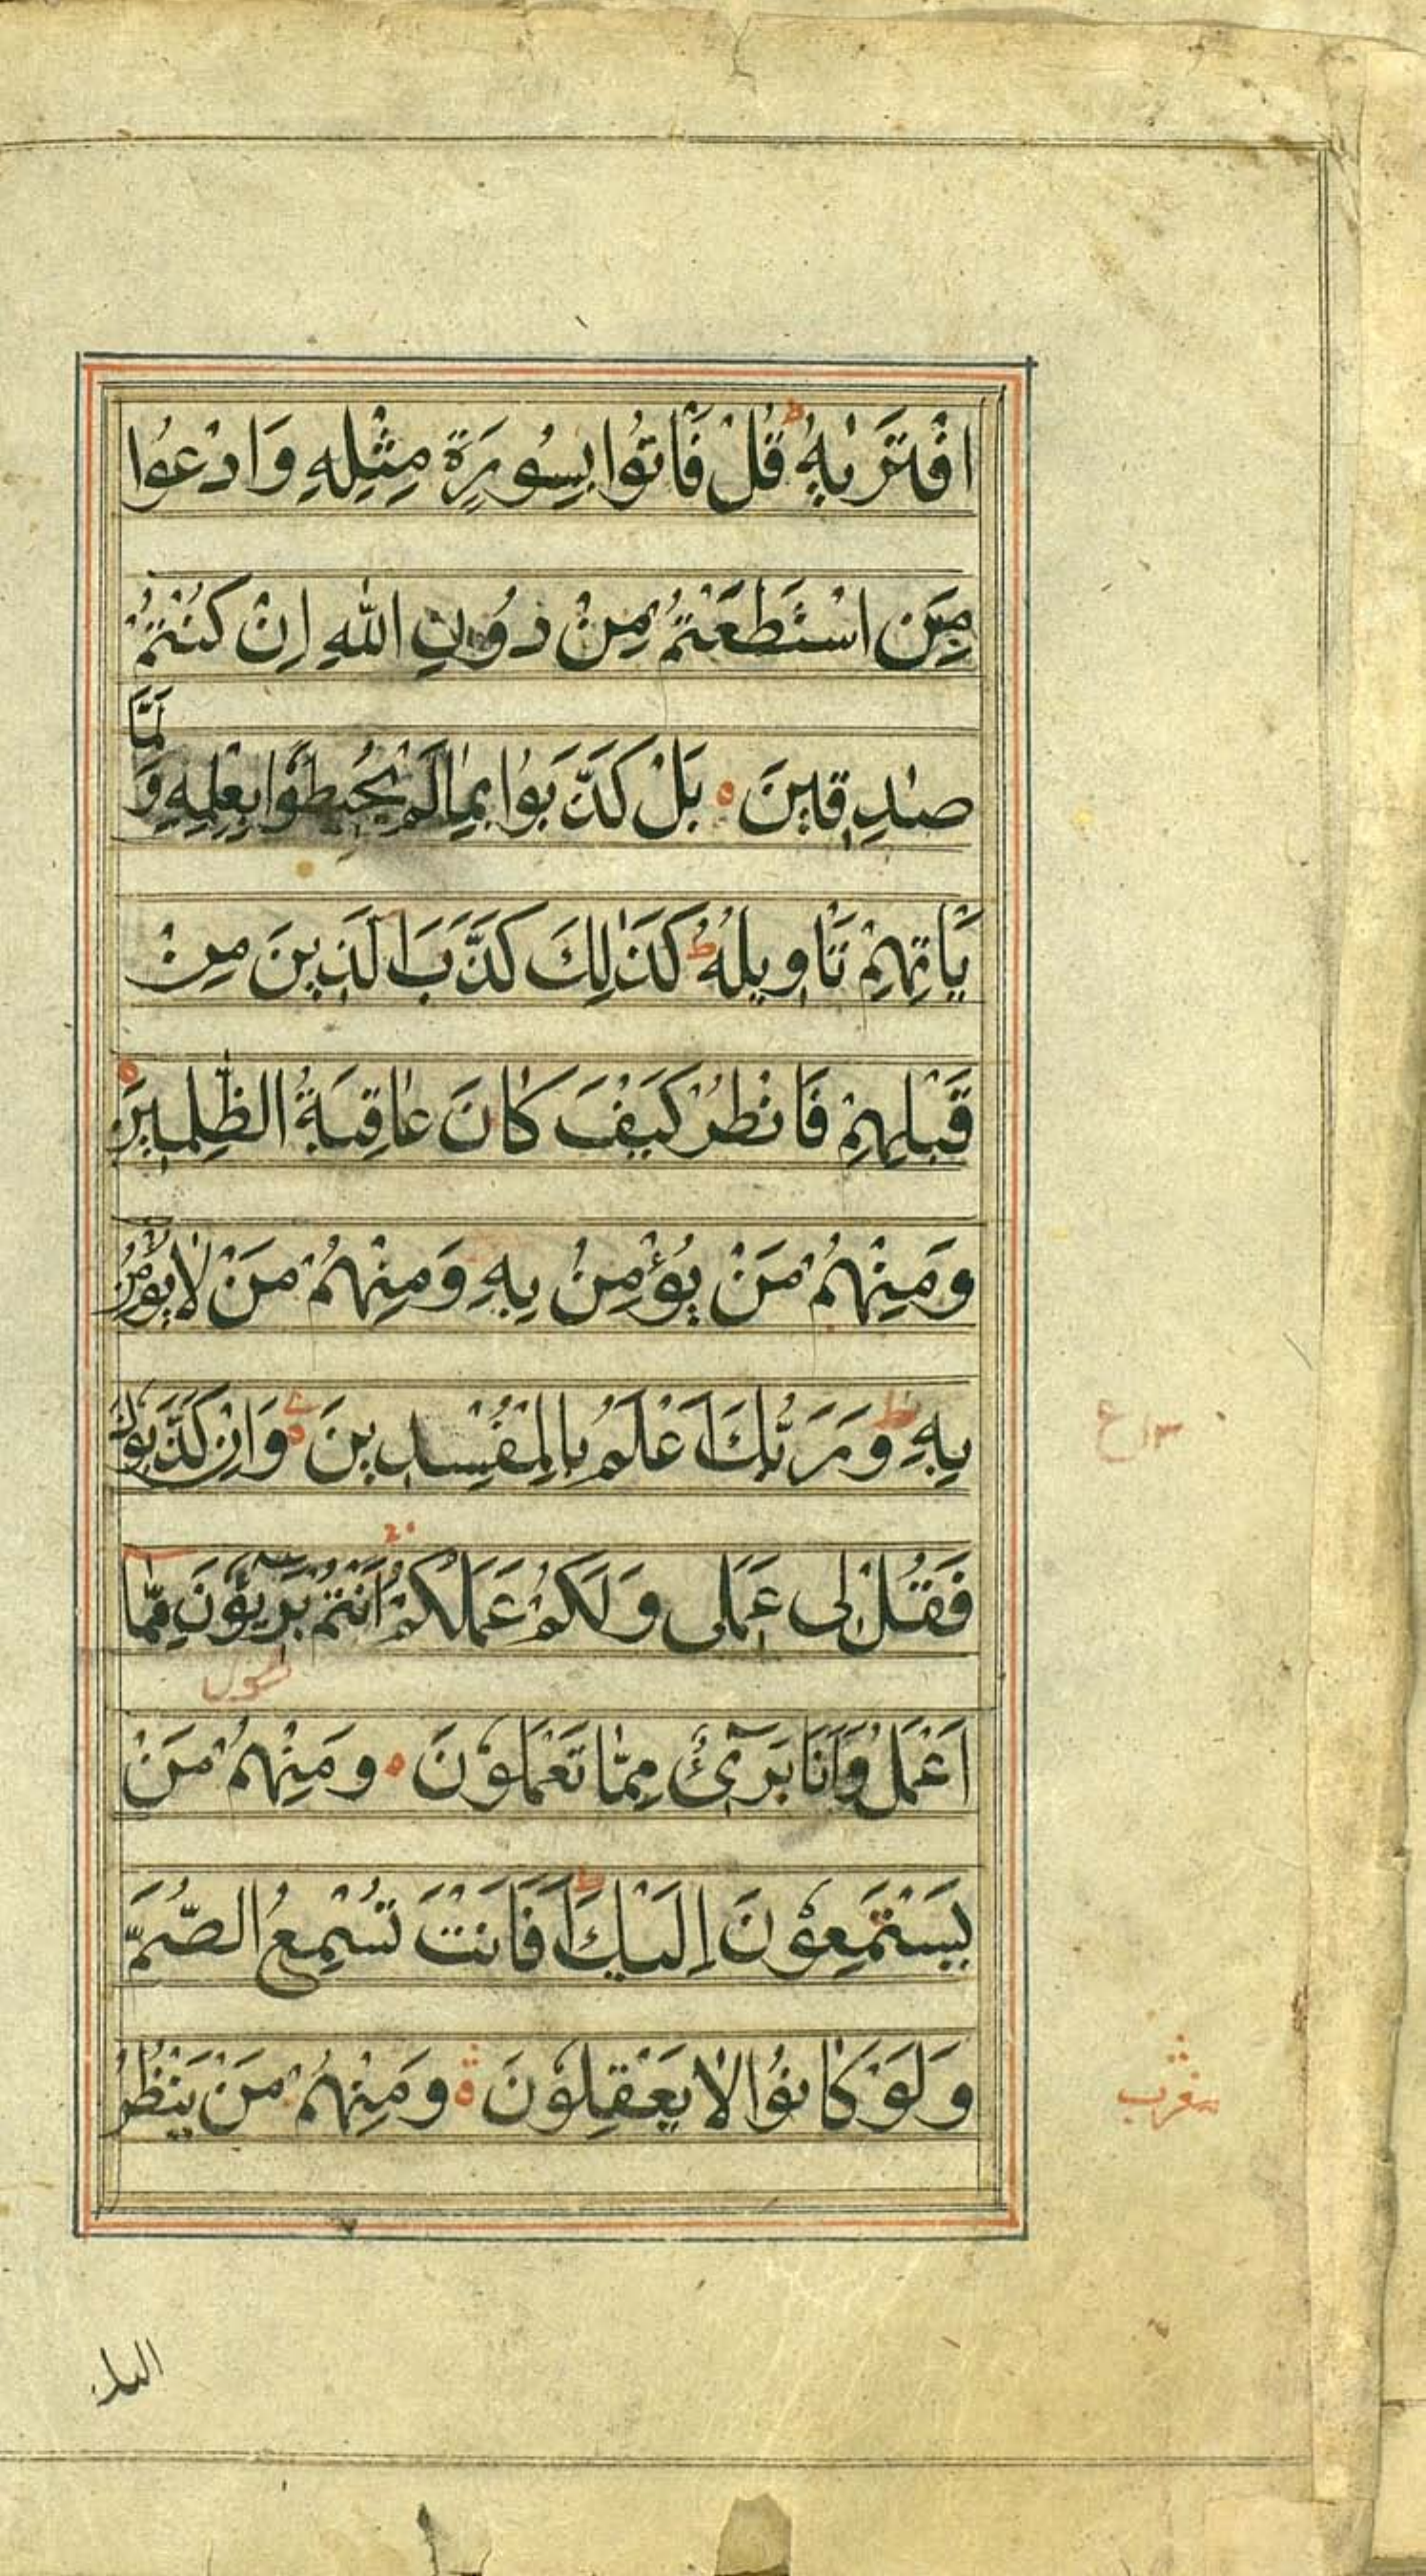 افْتَرٰىهُ ط قُلْ فَاْتُوْا بِسُوْرَةٍ مِثْلِهٖ وَادْعُوْا
مَنِ اسْتَطَعْتُمْ مِنْ دُوْنِ اللهِ اِنْ كُنْتُمْ
صٰدِقِيْنَ ه بَلْ كَذَّبُوْا بِمَا لَمْ يُحِيْطُوْا بِعِلْمِهٖ وَلَمَّا
يَاْتِهِمْ تَاْوِيْلُهٗ ط كَذٰلِكَ كَذَّبَ الَّذِيْنَ مِنْ
قَبْلِهِمْ فَانْظُرْ كَيْفَ كَانَ عَاقِبَةُ الظّٰلِمِيْنَ ه
وَمِنْهُمْ مَنْ يُؤْمِنُ بِهٖ وَمِنْهُمْ مَنْ لَا يُؤْمِنُ
بِهٖ ط وَرَبُّكَ اَعْلَمُ بِالْمُفْسِدِيْنَ ه وَاِنْ كَذَّبُوْكَ
فَقُلْ لِى عَمَلِى وَلَكُمْ عَمَلُكُمْ اَنْتُمْ بَرِيْٓؤُنَ مِمَّا
اَعْمَلُ وَاَنَا بَرِىْٓءٌ مِمَّا تَعْمَلُوْنَ ه وَمِنْهُمْ مَنْ
يَسْتَمِعُوْنَ اِلَيْكَ ط اَفَاَنْتَ تُسْمِعُ الصُّمَّ
وَلَوْ كَانُوْا لَا يَعْقِلُوْنَ ه وَمِنْهُمْ مَنْ يَنْظُرُ